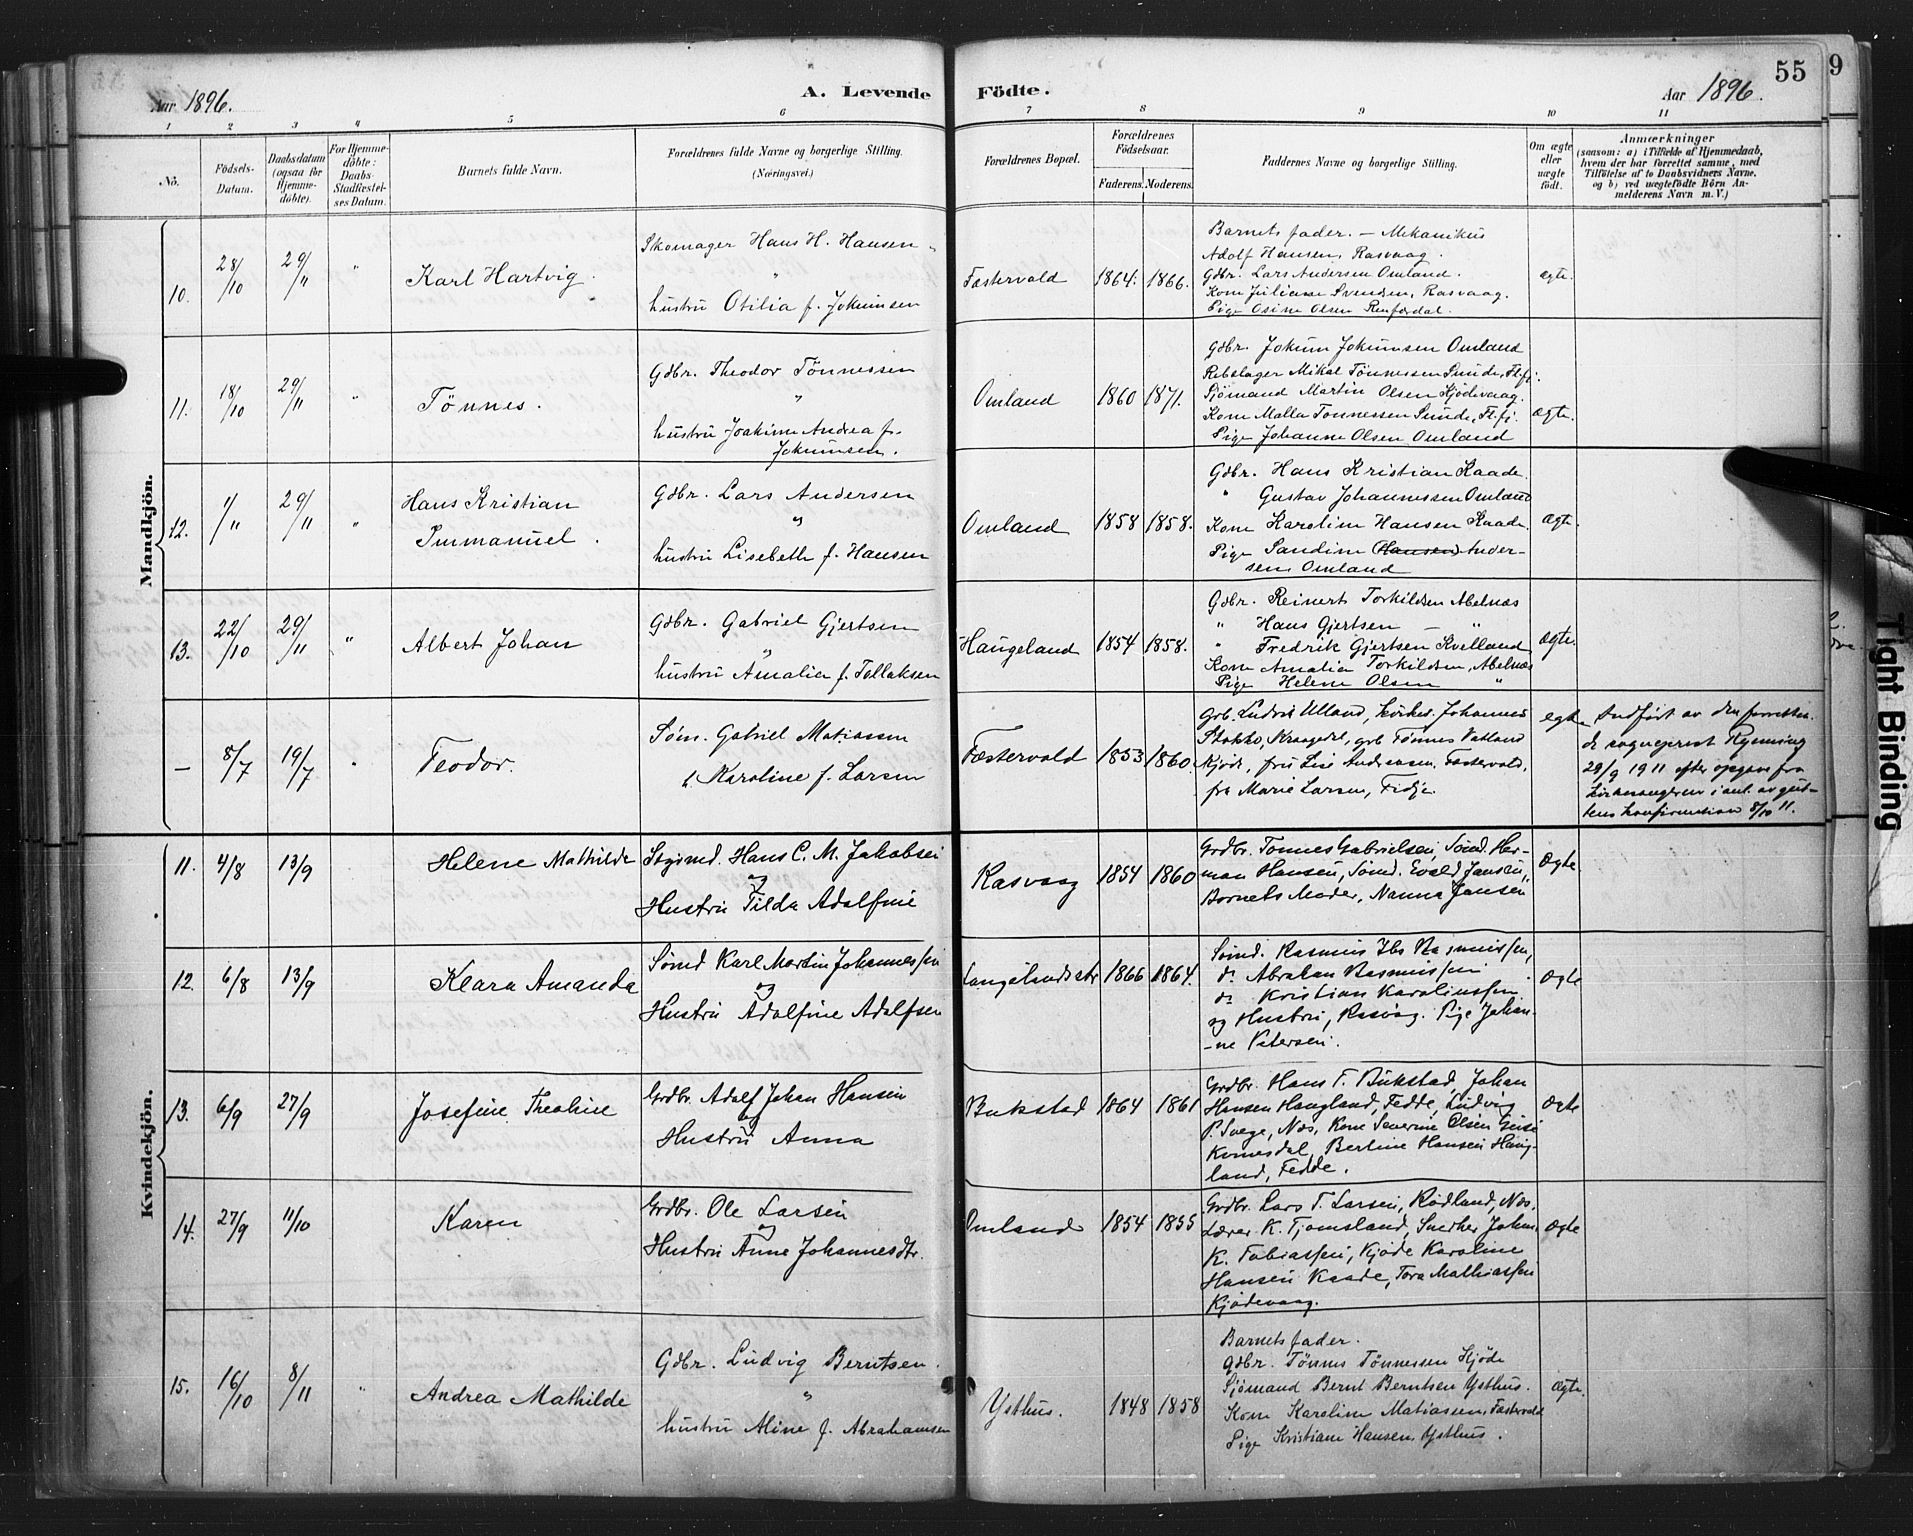 Aar 1896.
A. Levende Födte.
Aar 1896.
55
9
1 2 3 4 5 6 7 8 9 10 11
No.
Födsels-Datum.
Daabsdatum (ogsaa for Hjemme-döbte).
For Hjemme-döbte: Daabs-Stadfæstel-ses Datum.
Barnets fulde Navn.
Forældrenes fulde Navne og borgerlige Stilling. (Næringsvei.)
Forældrenes Bopæl.
Forældrenes Födselsaar.
Faderens. Moderens.
Faddernes Navne og borgerlige Stilling.
Om ægte eller uægte födt.
Anmærkninger
(saasom: a) i Tilfælde af Hjemmedaab, hvem der har forrettet samme, med Tilföielse af to Daabsvidners Navne. og b) ved uægtefödte Börn An-melderens Navn m. V.)
Mandkjön.
10. 28/10 29/11 " Karl Hartvig.
Skomager Hans H. Hansen
"
hustru Otilia f. Jokumsen
Fæstervold 1864. 1866.
Barnets fader. — Mekanikus
Adolf Hansen, Rasvaag.
Gdbr. Lars Andersen Omland.
Kone Juliane Svendsen, Rasvaag.
Pige Osine Olsen
ægte.
11. 18/10 29/11 " Tönnes.
Gdbr. Theodor Tönnessen
"
hustru Joakime Andrea f.
Jokumsen.
Omland 1860 1871.
Gdbr. Jokum Jokumsen Omland
Rebslager Mikal Tönnessen Sunde, Fl.fj.
Sjömand Martin Olsen Kjödevaag.
Kone Malla Tonnessen Sunde, Fl.fj.
Pige Johanne Olsen Omland
Ægte.
12. 1/11 29/11 " Hans Kristian
Immanuel.
Gdbr. Lars Andersen
"
hustru Lisebeth f. Hansen
Omland 1858 1858.
Gdbr. Hans Kristian Kaade.
" Gustav Johannessen Omland
Kone Karoline Hansen Kaade.
Pige Sandine Hansen Ander-
sen Omland
Ægte.
13. 22/10 29/11 " Albert Johan
Gdbr. Gabriel Gjertsen
"
hustru Amalia f. Tellaksen
Haugeland 1854 1858.
Gdbr. Reinert Torkildsen Abelnæs
" Hans Gjertsen — "
" Fredrik Gjertsen Kvelland
Kone Amalia Torkildsen, Abelnæs
Pige Helene Olsen "
Ægte.
— 8/7 19/7 Teodor.
Söm. Gabriel Matiassen
h. Karoline f. Larsen
Fæstervold 1853 1860.
Grb. Ludvik Ulland, Johannes
Stokke, grb Tönnes Vatland
Kjöde, fru Lise Andreasen, Fæstervold,
fru Marie Larsen, Fidje.
egte
Indfört av den forretten-
de sogneprest Rynning
28/9 1911 efter opgave fra
kirkesangeren i anl. av gut-
tens konfirmation 8/10 11.
Kvindekjön.
11. 4/8 13/9 Helene Mathilde
Hans C. M. Jakobsen
og
Hustru Tilda Adolfine
Rasvaag 1854 1860
Grdbr. Tonnes Gabrielsen, Sömd. Her-
man Hansen, Sömd. Evald Jansen,
Barnets Moder, Nanna Jansen
Ægte
12. 6/8 13/9 Klara Amanda
Sömd Karl Martin Johannessen
og
Hustru Adolfine Adolfsen
1866 1864.
Sömd. Rasmus Rasmussen,
do Abraham Rasmussen
do Kristian Karoliussen
og Hustru, Rasvåg. Pige Johan-
-ne Petersen.
Ægte
13. 6/9 27/9 Josefine Theoline
Grdbr. Adolf Johan Hansen
og
Hustru Anna
Bukstad 1864 1861
Grdbr. Hans T. Bukstad, Johan
Hansen Haugland, Fedde, Ludvig
P. Svege, Næs, Kone Severine Olsen
Kvinesdal, Bertine Hansen Haug-
land, Fedde.
Ægte
14. 27/9 11/10 Karen
Grdbr. Ole Larsen
og
Hustru Anne Johannesdtr.
Omland 1854 1855
Grdbr. Lars T. Larsen, Rödland, Næs.
Lærer K. Tjomsland, Snedker Johan
K. Tobiassen, Kjöde Karoline
Hansen Kaade, Tora Mathiassen
Kjödevaag.
Ægte
15. 16/10 8/11 " Andrea Mathilde
Gdbr. Ludvig Berntsen.
"
hustru Aline f. Abrahamsen
Ysthus. 1848 1858
Barnets fader.
Gdbr. Tönnes Tönnessen Kjöde
Sjömand Bernt Berntsen Ysthus.
Kone Karoline Matiassen, Fæstervold
Pige Kristiane Hansen, Ysthus.
Ægte.
Tight Binding